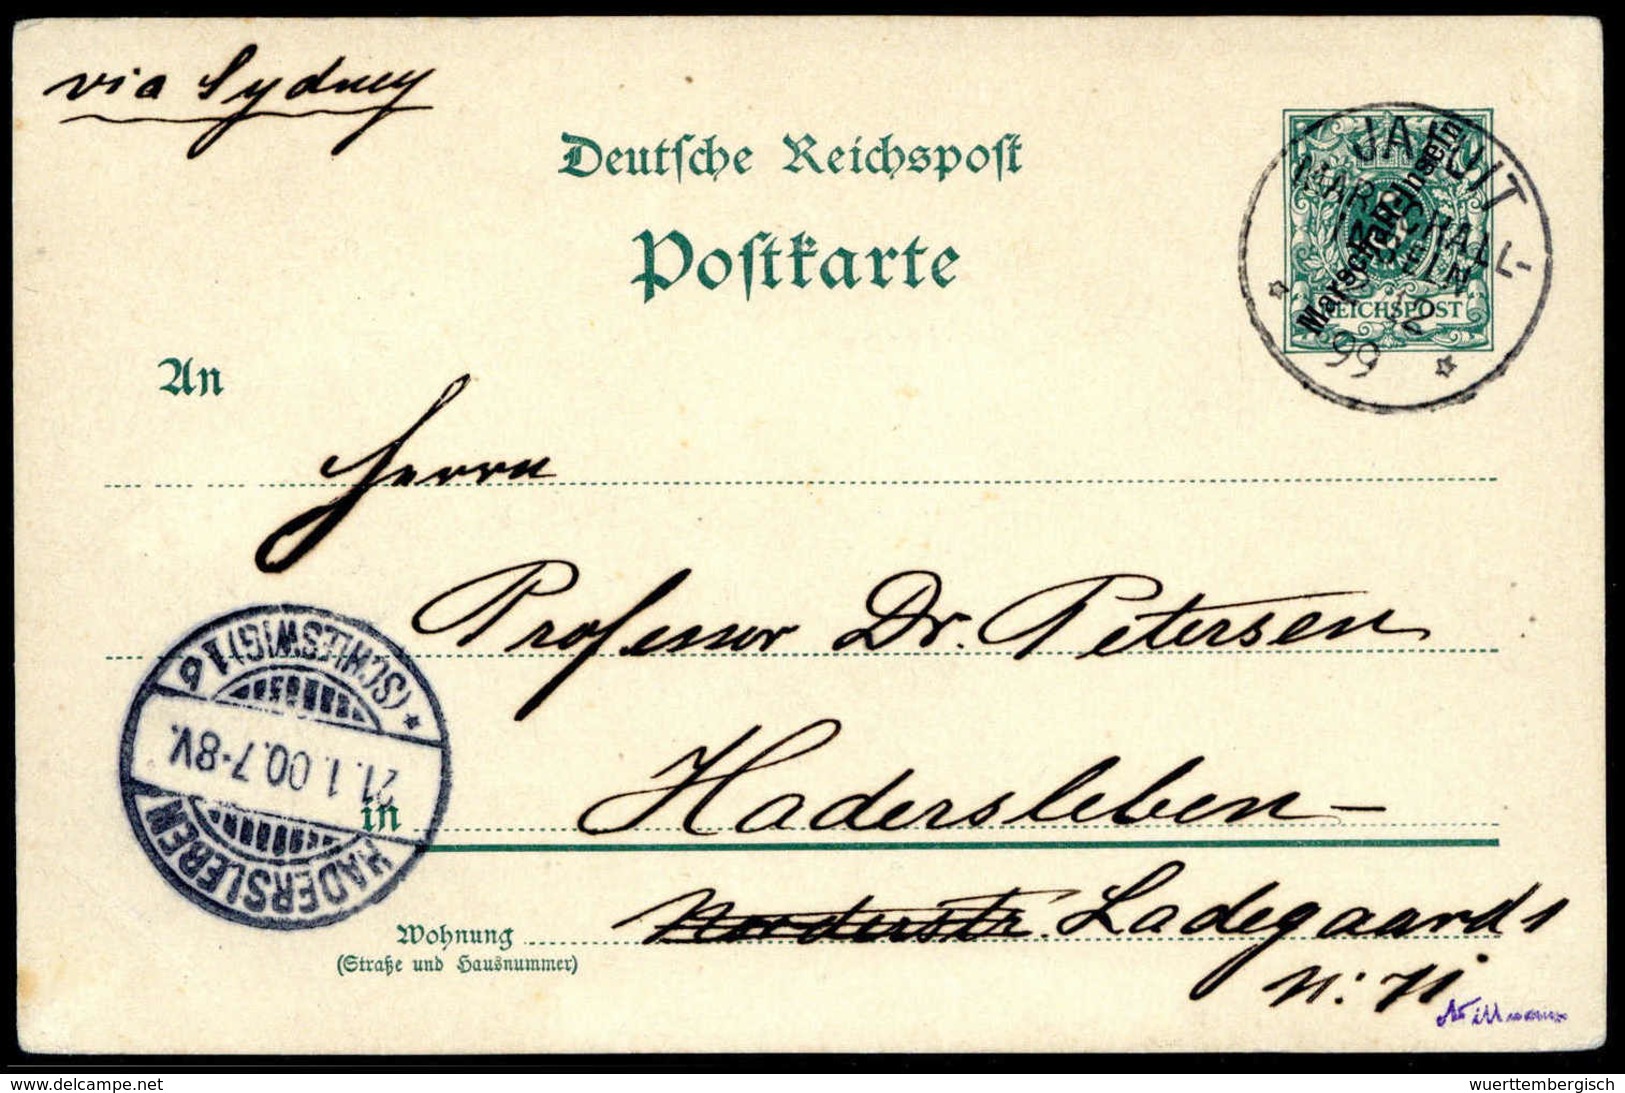 via Sydney
Deutsche Reichspost
Postkarte
JALUIT
MARSCHALL-
INSELN
12
99
Marschall-Inseln
REICHSPOST
An
Herrn
Professor Dr. Petersen
(SCHLESWIG) 1 b
21.1.00.7-8V.
HADERSLEBEN
in
Hadersleben-
Wohnung
(Straße und Hausnummer)
Norderstr. Ladegaards
delcampe.net
wuerttembergisch